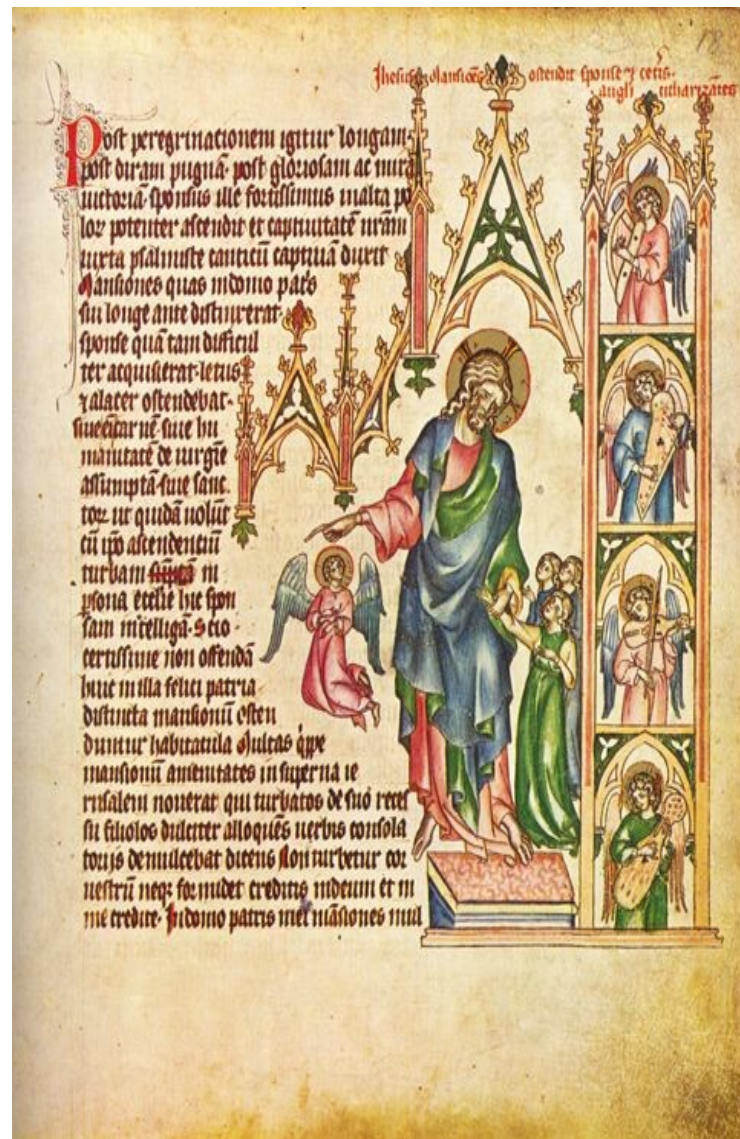 18
Jhesus Mansiones ostendit sponse et ceteris.
angeli citharizantes
Post peregrinacionem igitur longam·
post diram pugnā· post gloriosam ac mirā
uictoriā· sponsus ille fortissimus in alta po
lor potenter ascendit et captiuitatē nrām
iuxta psalmiste canticū captiuā duxit
Mansiones quas in domo patris
sui longe ante distinxerat·
sponse quā tam difficul
ter acquisierat· letus
⁊ alacer ostendebat·
siue carnē siue hu
manitatē de uirgīe
assumptā· siue sanc
tor ut quidā uolūt
cū ip̄o ascendentiū
turbam in
psona ecc̄lie hic spon
sam intelligā· Scio
certissime non offendā
hinc in illa felici patria
distincta mansionū osten
duntur habitacula Multas q̄ppe
mansionū amenitates in superna ie
rusalem nouerat qui turbatos de suo reces
su filiolos dulciter alloquēs uerbis consola
torijs demulcebat dicens Non turbetur cor
uestrū neq; formidet creditis in deum et in
me credite· In domo patris mei māsiones mul